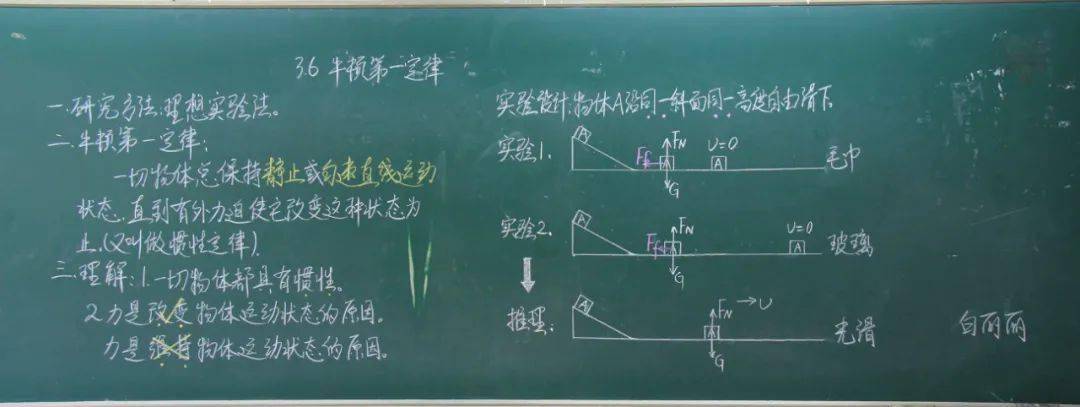 3.6 牛顿第一定律
一.研究方法:理想实验法。
二.牛顿第一定律:
一切物体总保持静止或匀速直线运动
状态,直到有外力迫使它改变这种状态为
止.(又叫做惯性定律).
三.理解:1.一切物体都具有惯性。
2.力是改变物体运动状态的原因。
力是维持物体运动状态的原因。
实验设计:物体A沿同一斜面同一高度自由滑下
实验1. A Ff FN G υ=0 A 毛巾
实验2. A Ff FN G υ=0 A 玻璃
推理: A FN G υ 光滑
白丽丽